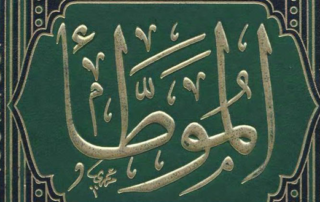 الموطّأ